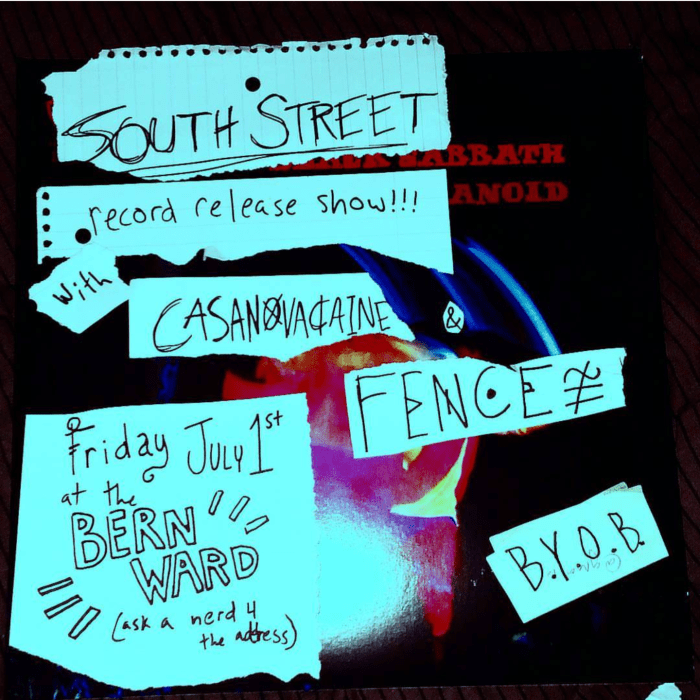 SOUTH STREET
SABBATH
ANOID
record release show!!!
with
CASANØVACAINE
&
FENCE
Friday July 1st
at the
BERN
WARD
(ask a nerd 4
the address)
B.Y.O.B.